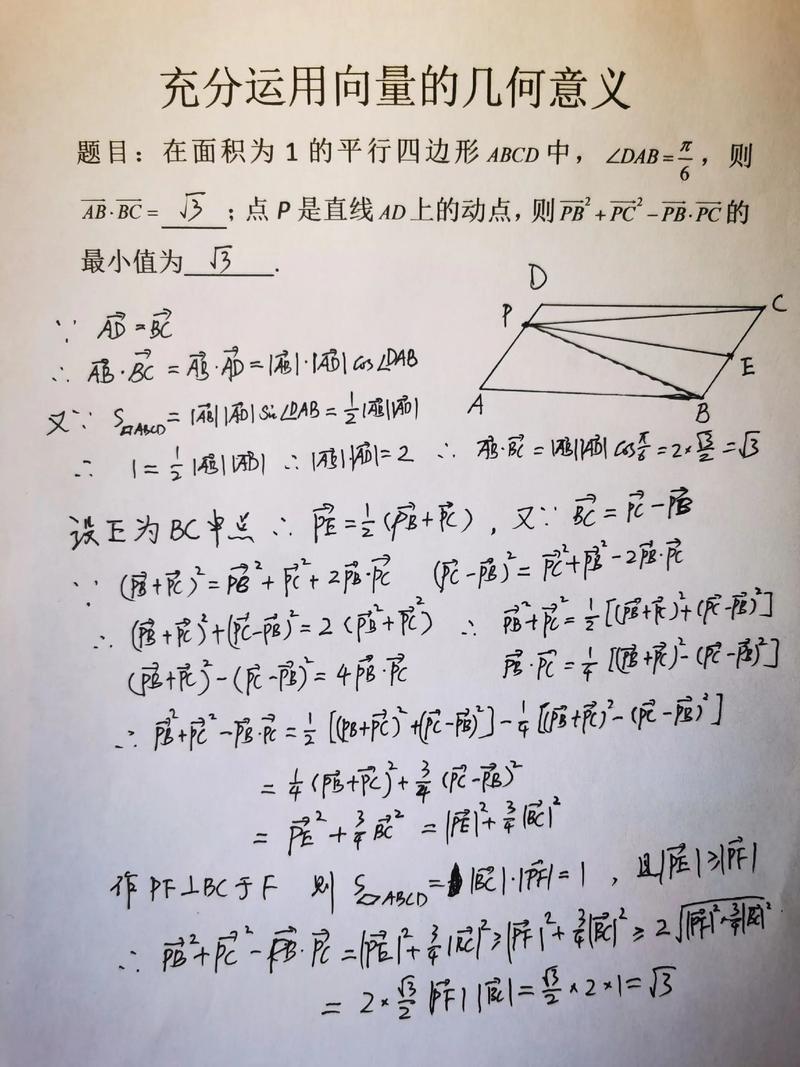 充分运用向量的几何意义
题目：在面积为 1 的平行四边形 ABCD 中，∠DAB=π/6，则
AB·BC= √3 ；点 P 是直线 AD 上的动点，则 PB²+PC²−PB·PC 的
最小值为 √3 .
D
P
C
E
A
B
∵ AD = BC
∴ AB·BC = AB·AD = |AB|·|AD| cos∠DAB
又∵ S▱ABCD = |AB||AD| sin∠DAB = 1/2|AB||AD|
∴ 1 = 1/2 |AB||AD| ∴ |AB||AD| = 2 ∴ AB·BC = |AB||AD| cos π/6 = 2×√3/2 = √3
设E为BC中点 ∴ PE = 1/2 (PB+PC)，又∵ BC = PC − PB
∵ (PB+PC)² = PB²+PC²+2PB·PC (PC−PB)² = PC²+PB²−2PB·PC
∴ (PB+PC)²+(PC−PB)² = 2(PB²+PC²) ∴ PB²+PC² = 1/2 [(PB+PC)²+(PC−PB)²]
(PB+PC)²−(PC−PB)² = 4PB·PC PB·PC = 1/4 [(PB+PC)²−(PC−PB)²]
∴ PB²+PC²−PB·PC = 1/2 [(PB+PC)²+(PC−PB)²]−1/4 [(PB+PC)²−(PC−PB)²]
= 1/4 (PB+PC)²+3/4 (PC−PB)²
= PE²+3/4 BC² = |PE|²+3/4 |BC|²
作 PF⊥BC于F 则 S▱ABCD = |BC|·|PF| = 1，且|PE|≥|PF|
∴ PB²+PC²−PB·PC = |PE|²+3/4|BC|² ≥ |PF|²+3/4|BC|² ≥ 2√(|PF|²×3/4|BC|²)
= 2×√3/2 |PF||BC| = √3/2×2×1 = √3